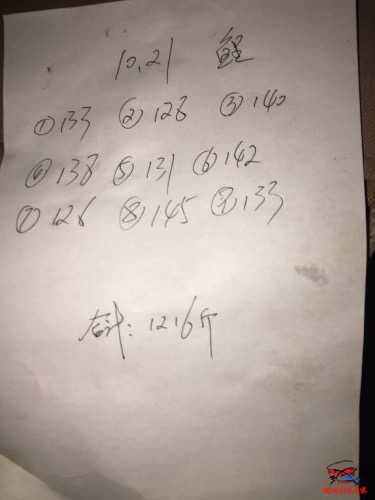 10,21 鲤
①133 ②128 ③140
④138 ⑤131 ⑥142
⑦126 ⑧145 ⑨133
合计:1216斤